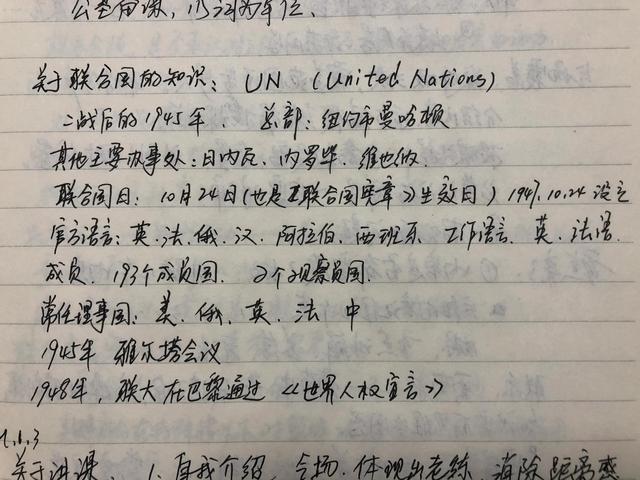 关于联合国的知识：UN（United Nations）
二战后的1945年. 总部：纽约市曼哈顿
其他主要办事处：日内瓦、内罗毕、维也纳.
联合国日：10月24日(也是《联合国宪章》生效日）1945.10.24 设立
官方语言：英.法.俄、汉、阿拉伯、西班牙 工作语言、英、法语
成员、193个成员国. 2个观察员国.
常任理事国：美、俄、英、法 中
1945年 雅尔塔会议
1948年，联大在巴黎通过《世界人权宣言》
1.1.3
关于讲课、1、自我介绍、会场、体现出老练、消除距离感